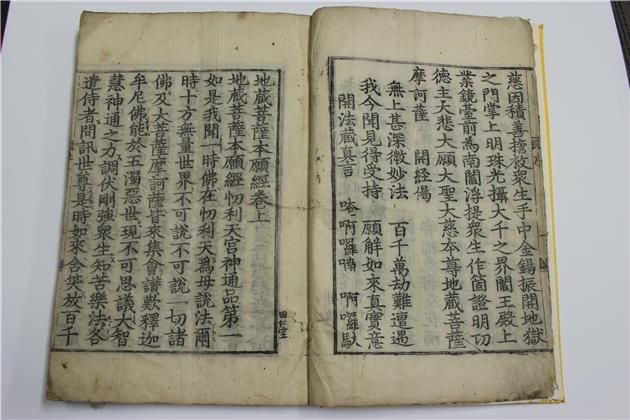 慈因積善誓救衆生手中金錫振開地獄
之門掌上明珠光攝大千之界閻王殿上
業鏡臺前為南閻浮提衆生作箇證明功
德主大悲大願大聖大慈本尊地藏菩薩
摩訶薩 開經偈
無上甚深微妙法 百千萬劫難遭遇
我今聞見得受持 願解如來真實意
開法藏真言 唵 啊囉喃 啊囉馱
地藏菩薩本願經卷上
地藏菩薩本願經忉利天宮神通品第一
如是我聞一時佛在忉利天為母說法爾
時十方無量世界不可說不可說一切諸
佛及大菩薩摩訶薩皆來集會讚歎釋迦
牟尼佛能於五濁惡世現不可思議大智
慧神通之力調伏剛強衆生知苦樂法各
遣侍者問訊世尊是時如來含笑放百千